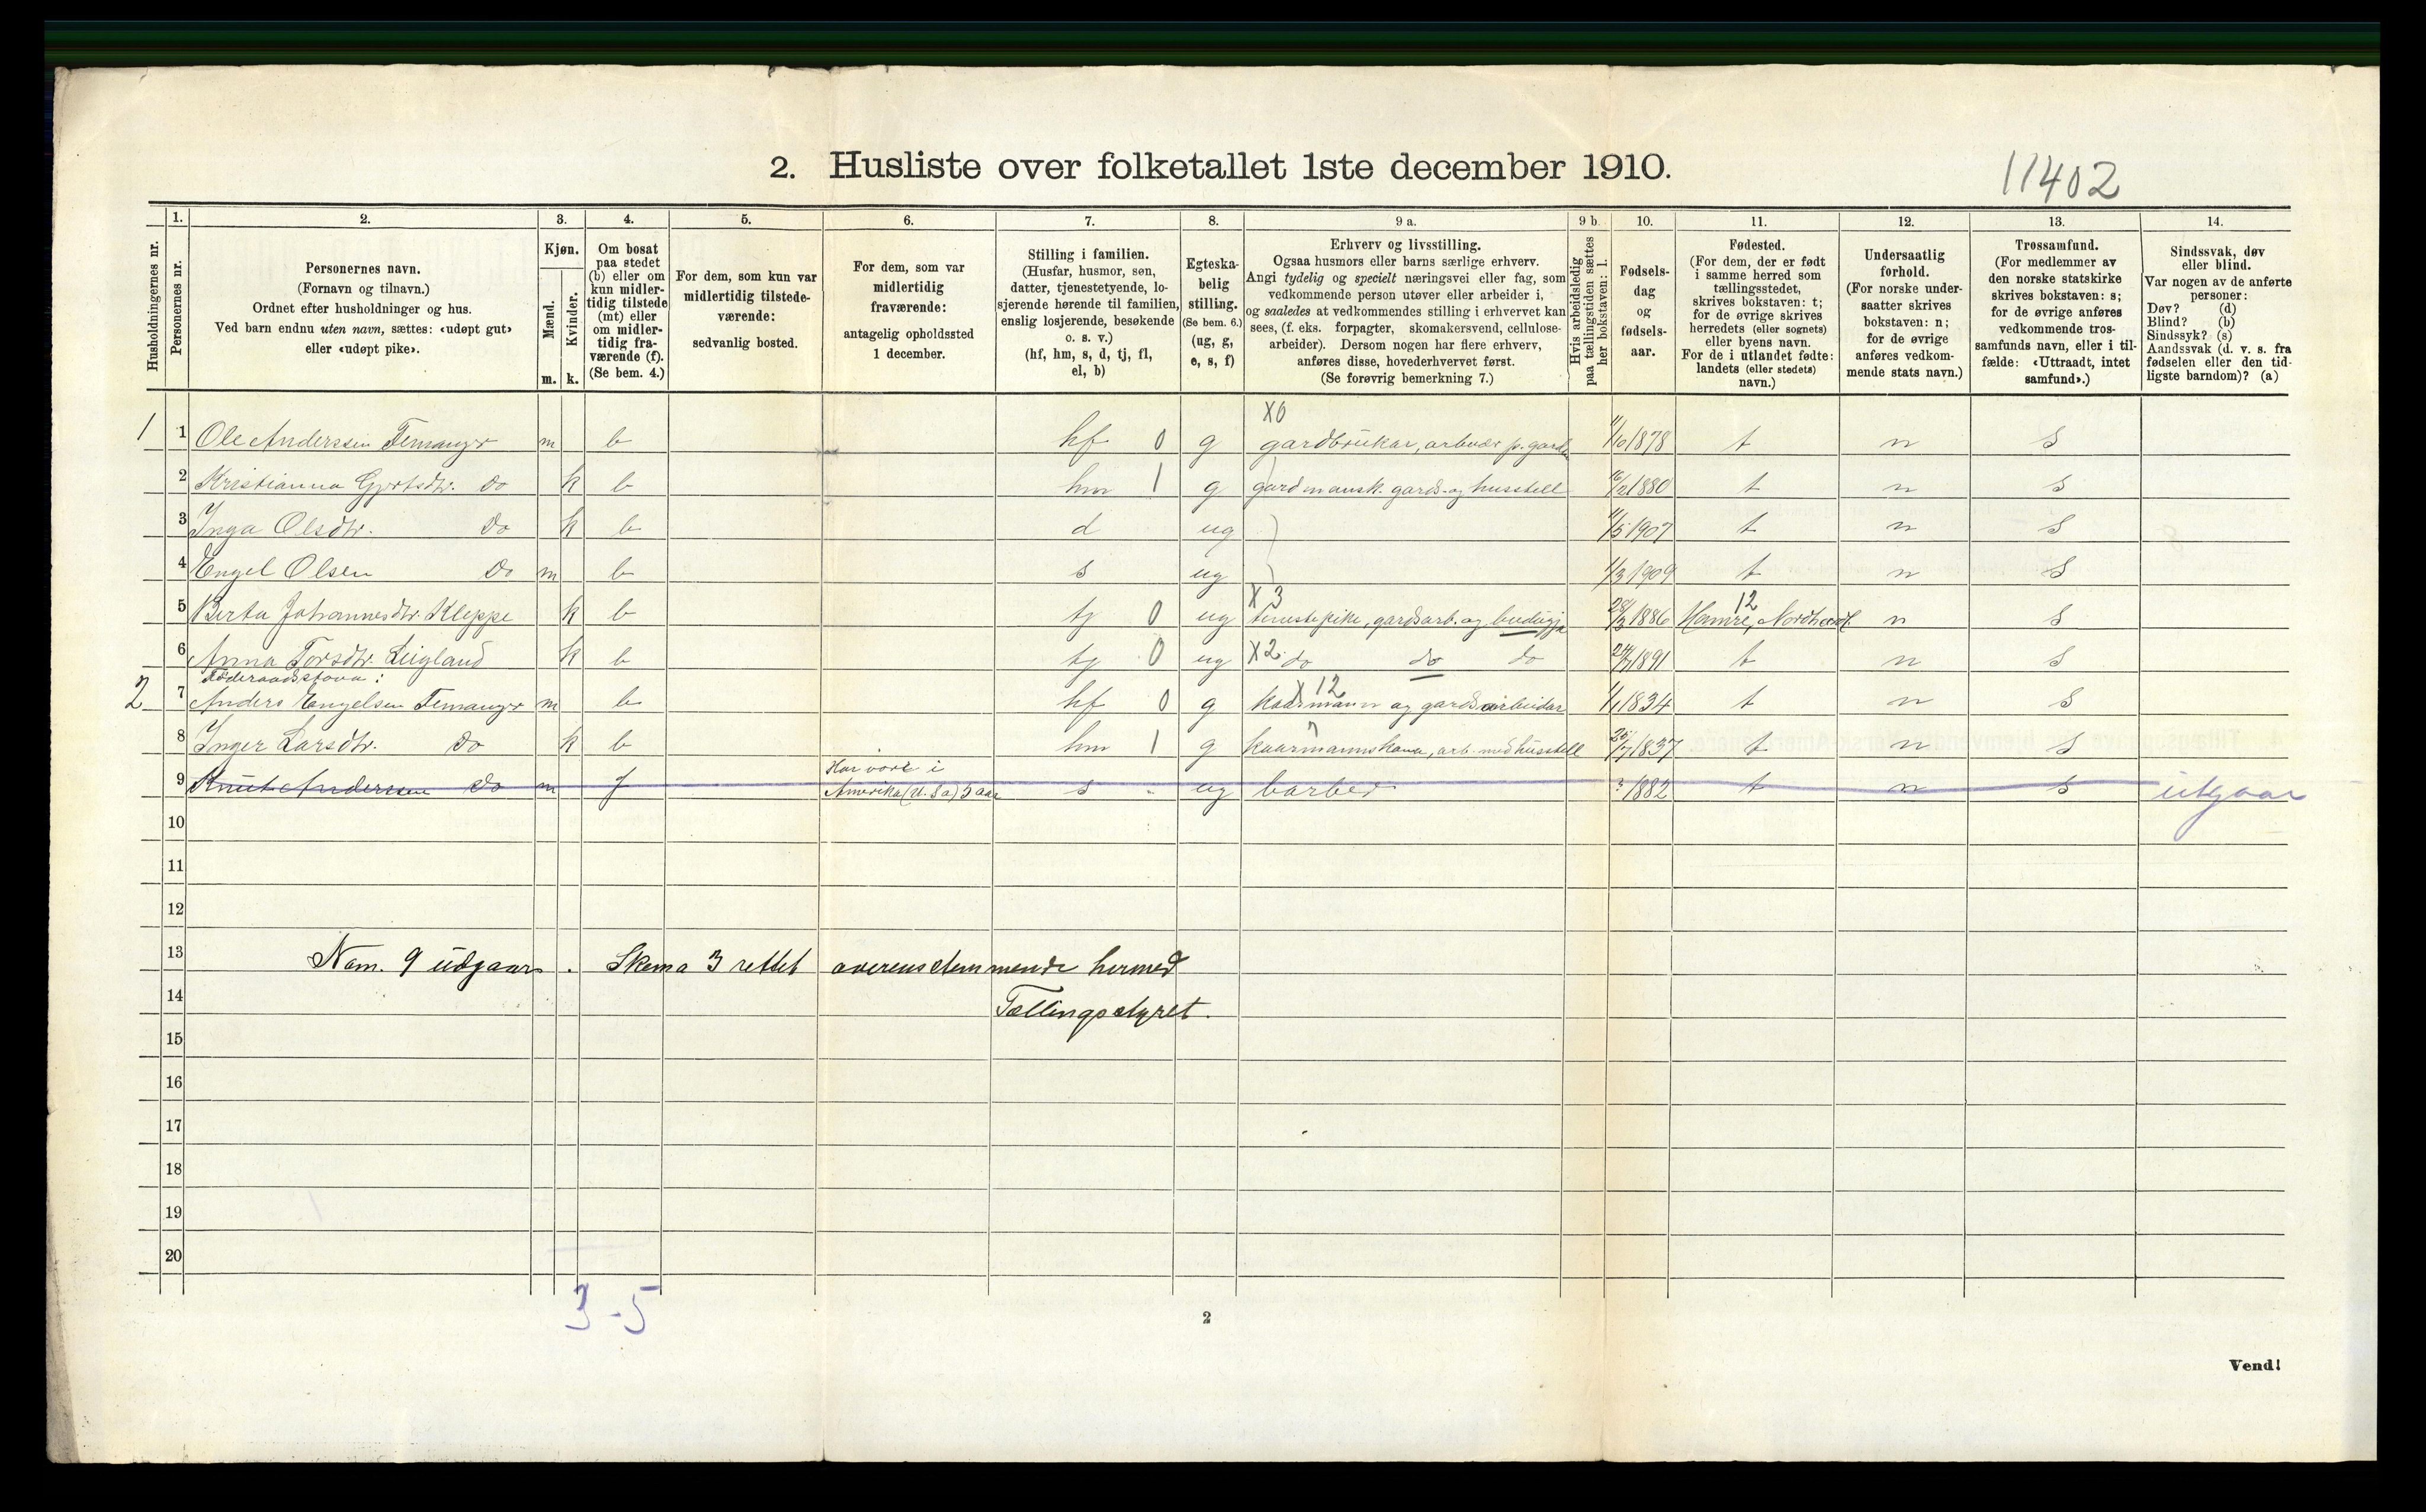 2. Husliste over folketallet 1ste december 1910.
11402
1. 2. 3. 4. 5. 6. 7. 8. 9 a. 9 b. 10. 11. 12. 13. 14.
Husholdningernes nr.
Personernes nr.
Personernes navn.
(Fornavn og tilnavn.)
Ordnet efter husholdninger og hus.
Ved barn endnu uten navn, sættes: «udøpt gut»
eller «udøpt pike».
Kjøn.
Mænd.
Kvinder.
m. k.
Om bosat
paa stedet
(b) eller om
kun midler-
tidig tilstede
(mt) eller
om midler-
tidig fra-
værende (f).
(Se bem. 4.)
For dem, som kun var
midlertidig tilstede-
værende:
sedvanlig bosted.
For dem, som var
midlertidig
fraværende:
antagelig opholdssted
1 december.
Stilling i familien.
(Husfar, husmor, søn,
datter, tjenestetyende, lo-
sjerende hørende til familien,
enslig losjerende, besøkende
o. s. v.)
(hf, hm, s, d, tj, fl,
el, b)
Egteska-
belig
stilling.
(Se bem. 6.)
(ug, g,
e, s, f)
Erhverv og livsstilling.
Ogsaa husmors eller barns særlige erhverv.
Angi tydelig og specielt næringsvei eller fag, som
vedkommende person utøver eller arbeider i,
og saaledes at vedkommendes stilling i erhvervet kan
sees, (f. eks. forpagter, skomakersvend, cellulose-
arbeider). Dersom nogen har flere erhverv,
anføres disse, hovederhvervet først.
(Se forøvrig bemerkning 7.)
Hvis arbeidsledig
paa tællingstiden sættes
her bokstaven: l.
Fødsels-
dag
og
fødsels-
aar.
Fødested.
(For dem, der er født
i samme herred som
tællingsstedet,
skrives bokstaven: t;
for de øvrige skrives
herredets (eller sognets)
eller byens navn.
For de i utlandet fødte:
landets (eller stedets)
navn.)
Undersaatlig
forhold.
(For norske under-
saatter skrives
bokstaven: n;
for de øvrige
anføres vedkom-
mende stats navn.)
Trossamfund.
(For medlemmer av
den norske statskirke
skrives bokstaven: s;
for de øvrige anføres
vedkommende tros-
samfunds navn, eller i til-
fælde: «Uttraadt, intet
samfund».)
Sindssvak, døv
eller blind.
Var nogen av de anførte
personer:
Døv? (d)
Blind? (b)
Sindssyk? (s)
Aandssvak (d. v. s. fra
fødselen eller den tid-
ligste barndom)? (a)
X0
1 1 Ole Anderssen Temanger m b hf 0 g gardbrukar, arbeider p. garden 1878 t n s
2 Kristianna Gjertsdtr. do k b hm 1 g gardmansk. gards- og husstell 1880 t n s
3 Inga Olsdtr. do k b d ug 1907 t n s
4 Engel Olsen do m b s ug 1909 t n s
X 3 12
5 Berta Johannesdtr. Kleppe k b tj 0 ug tenestepike, gardsarb. og budeigja 1886 Hamre, Nordhordl. n s
6 Anna Torsdtr. Leigland k b tj 0 ug X2 do do do 1891 t n s
Føderaadsstova:
X 12
2 7 Anders Engelsen Temanger m b hf 0 g kaarmann og gardsarbeidar 1/1 1834 t n s
8 Inger Larsdtr. do k b hm 1 g kaarmannskona, arb. med husstell 1837 t n s
Har vore i
9 Knut Anderssen do m f Amerika (U. Sa) 5 aar s ug barber ? 1882 t n s utgaar
10
11
12
13 Nom. 9 udgaar. Skema 3 rettet overensstemmende hermed
14 Tællingsstyret.
15
16
17
18
19
20
3-5
2
Vend!